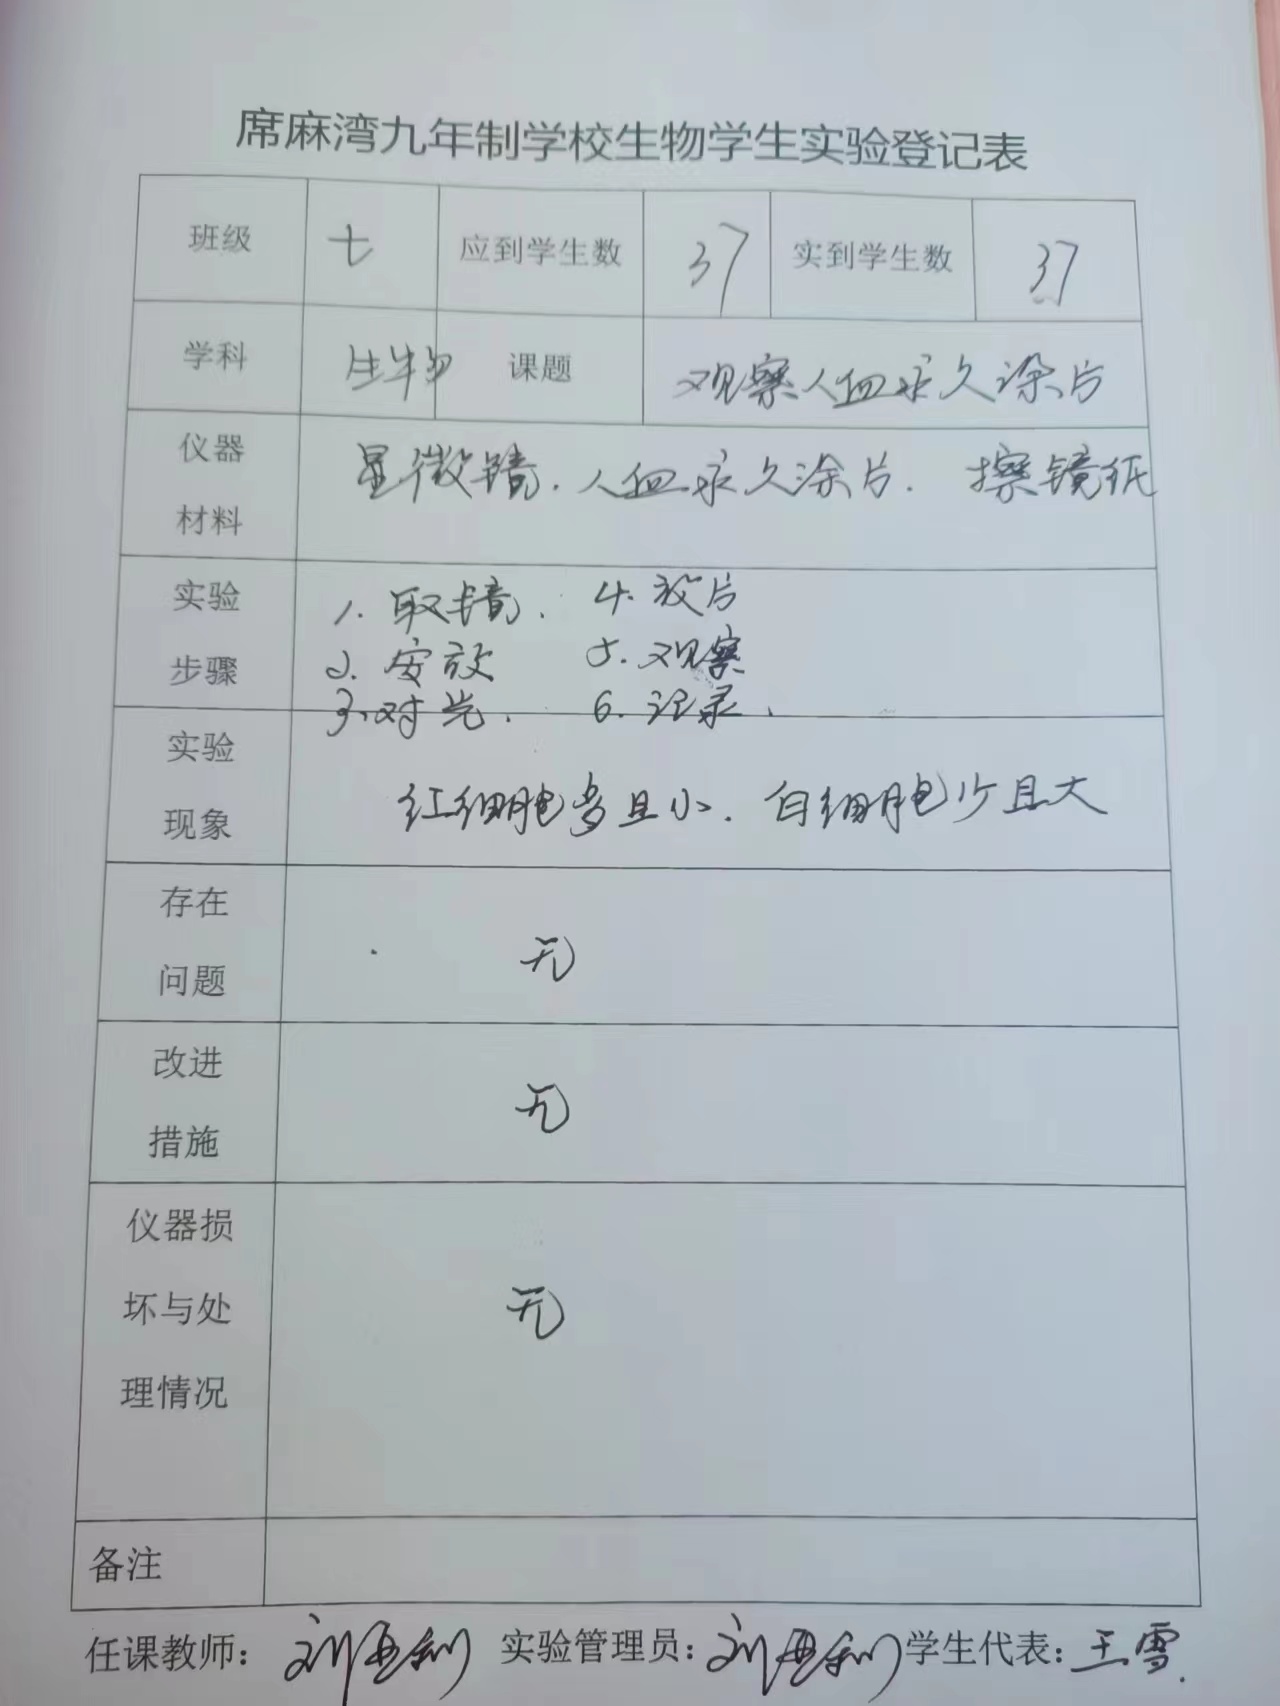 席麻湾九年制学校生物学生实验登记表
班级 七 应到学生数 37 实到学生数 37
学科 生物 课题 观察人血永久涂片
仪器
材料
显微镜. 人血永久涂片. 擦镜纸
实验
步骤
1. 取镜. 4. 放片
2. 安放 5. 观察
3. 对光. 6. 记录.
实验
现象
红细胞多且小. 白细胞少且大
存在
问题
无
改进
措施
无
仪器损
坏与处
理情况
无
备注
任课教师: 刘亚利 实验管理员: 刘亚利 学生代表: 王雪.